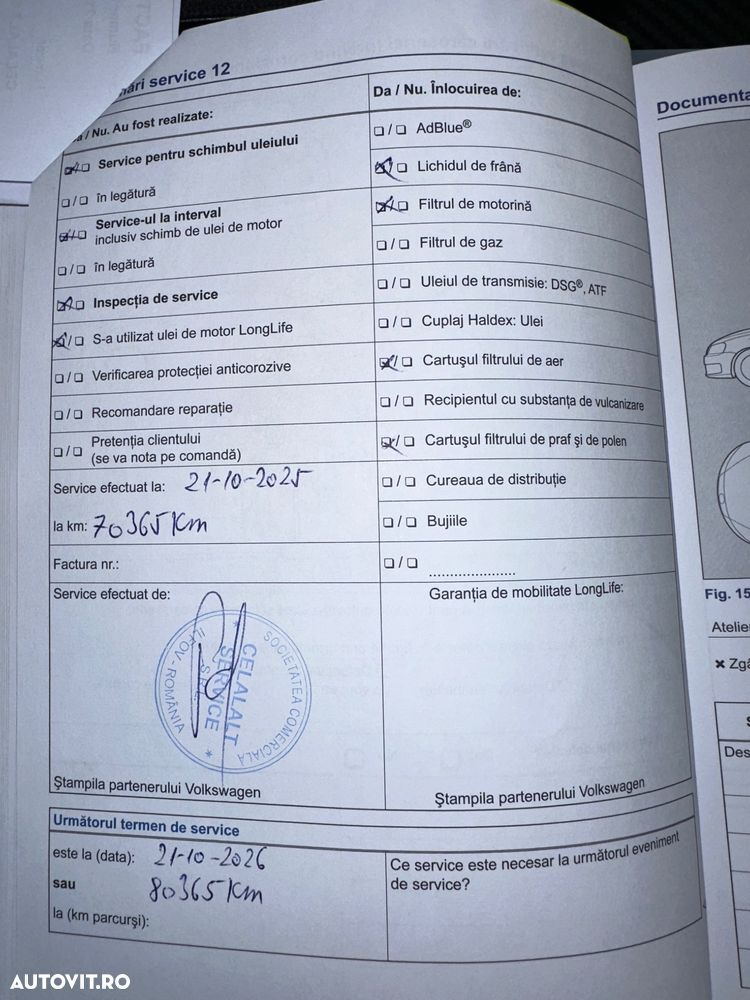 ări service 12
/ Nu. Au fost realizate:
Service pentru schimbul uleiului
❏ / ❏ în legătură
Service-ul la interval
inclusiv schimb de ulei de motor
❏ / ❏ în legătură
Inspecția de service
S-a utilizat ulei de motor LongLife
❏ / ❏ Verificarea protecției anticorozive
❏ / ❏ Recomandare reparație
❏ / ❏ Pretenția clientului
(se va nota pe comandă)
Service efectuat la: 21-10-2025
la km: 70365 Km
Factura nr.:
Service efectuat de:
SOCIETATEA COMERCIALĂ
CELALALT
SERVICE
S.R.L.
ILFOV - ROMÂNIA
Ștampila partenerului Volkswagen
Da / Nu. Înlocuirea de:
❏ / ❏ AdBlue®
Lichidul de frână
Filtrul de motorină
❏ / ❏ Filtrul de gaz
❏ / ❏ Uleiul de transmisie: DSG®, ATF
❏ / ❏ Cuplaj Haldex: Ulei
Cartușul filtrului de aer
❏ / ❏ Recipientul cu substanța de vulcanizare
Cartușul filtrului de praf și de polen
❏ / ❏ Cureaua de distribuție
❏ / ❏ Bujiile
❏ / ❏ .....................
Garanția de mobilitate LongLife:
Ștampila partenerului Volkswagen
Următorul termen de service
este la (data): 21-10-2026
sau 80365 Km
la (km parcurși):
Ce service este necesar la următorul eveniment
de service?
Documenta
Fig. 15
Atelie
× Zgâ
Des
AUTOVIT.RO